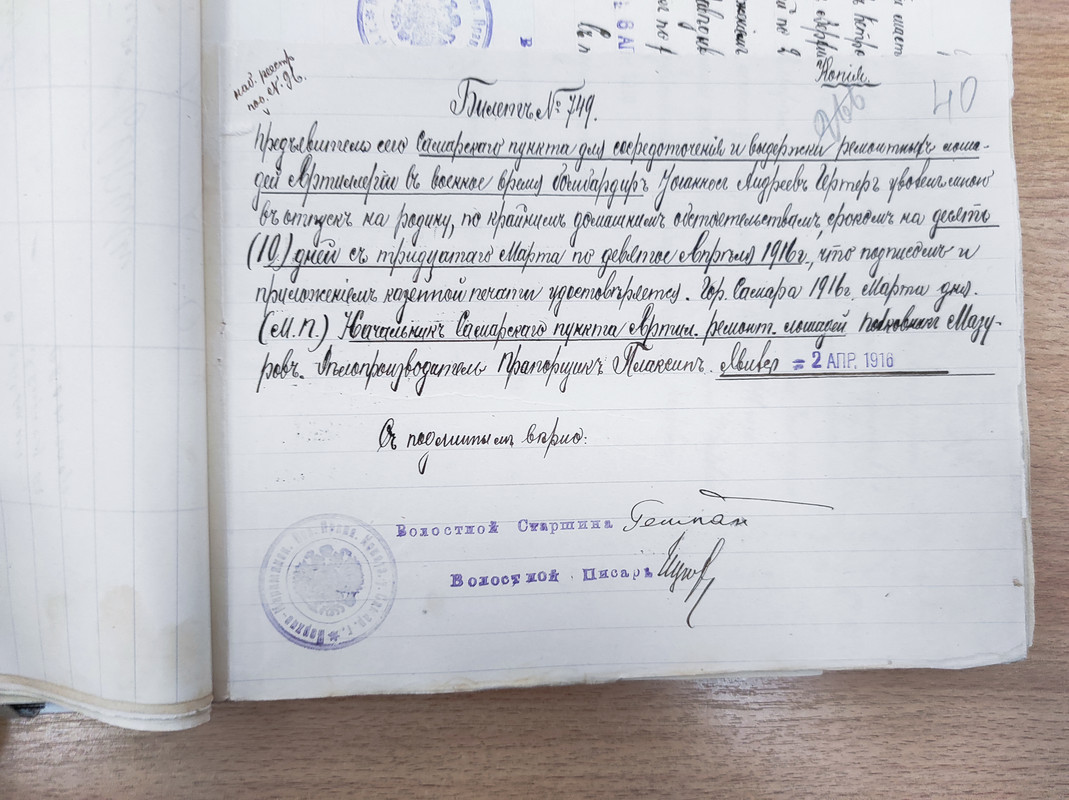 Копія.
40
266
Билетъ № 749.
Предъявитель сего Самарскаго пункта для сосредоточенія и выдержки ремонтныхъ лоша-
дей Артиллеріи въ военное время бомбардиръ Іоганнесъ Андреевъ Гертеръ уволенъ мною
въ отпускъ на родину, по крайнимъ домашнимъ обстоятельствамъ, срокомъ на десять
(10) дней съ тридцатаго Марта по девятое Апрѣля 1916 г., что подписомъ и
приложеніемъ казенной печати удостовѣряется. Гор. Самара 1916 г. Марта дня.
(М.П.) Начальникъ Самарскаго пункта Артил. ремонт. лошадей Полковникъ Мазу-
ровъ. Дѣлопроизводитель Прапорщикъ Плаксинъ. Явился = 2 АПР. 1916
Съ подлиннымъ вѣрно:
Волостной Старшина
Волостной Писарь